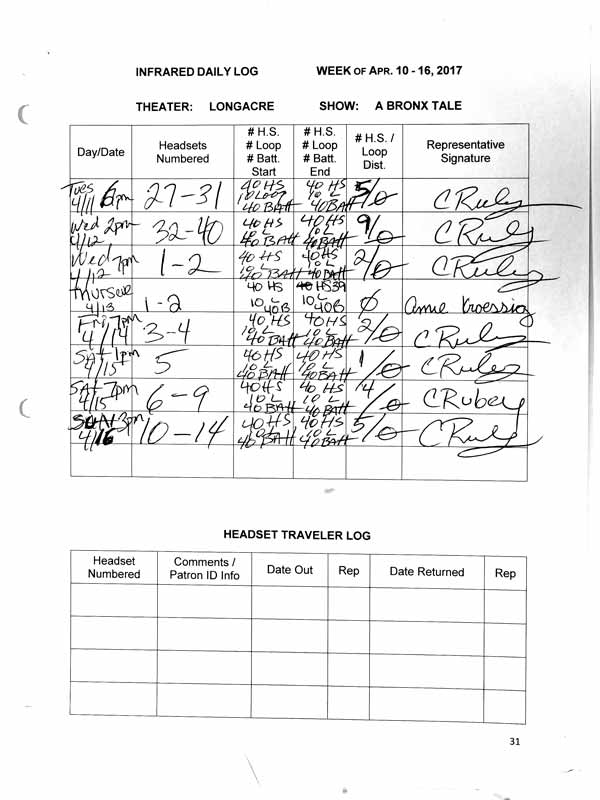 INFRARED DAILY LOG WEEK OF APR. 10 - 16, 2017
THEATER: LONGACRE SHOW: A BRONX TALE
Day/Date Headsets Numbered # H.S. # Loop # Batt. Start # H.S. # Loop # Batt. End # H.S. / Loop Dist. Representative Signature
Tues 6pm 4/11 27-31 40 HS 10 Loop 40 BAtt 40 HS 10 L 40 BAtt 5/0 C Rubey
Wed 2pm 4/12 32-40 40 HS 10 L 40 BAtt 40 HS 10 L 40 BAtt 9/0 C Rubey
Wed 7pm 4/12 1-2 40 HS 10 L 40 BAtt 40 HS 10 L 40 BAtt 2/0 C Rubey
4/13 1-2 40 HS 10 L 40B HS39 10 L 40B 0 Anne
Fri 7pm 4/14 3-4 40 HS 10 L 40 BAtt 40 HS 10 L 40 BAtt 2/0 C Rubey
SAt 1pm 4/15 5 40 HS 10 L 40 BAtt 40 HS 10 L 40 BAtt 1/0 C Rubey
SAt 7pm 4/15 6-9 40 HS 10 L 40 BAtt 40 HS 10 L 40 BAtt 4/0 C Rubey
SUN 3pm 4/16 10-14 40 HS 10 L 40 BAtt 40 HS 10 L 40 BAtt 5/0 C Rubey
HEADSET TRAVELER LOG
Headset Numbered Comments / Patron ID Info Date Out Rep Date Returned Rep
31